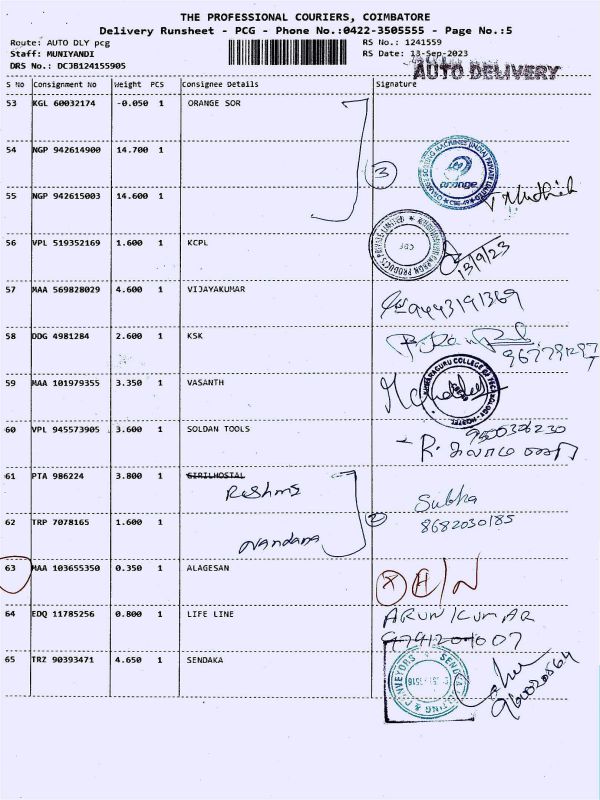 THE PROFESSIONAL COURIERS, COIMBATORE
Delivery Runsheet - PCG - Phone No.:0422-3505555 - Page No.:5
Route: AUTO DLY pcg RS No.: 1241559
Staff: MUNIYANDI RS Date: 13-Sep-2023
DRS No.: DCJB124155905 AUTO DELIVERY
S No Consignment No Weight PCS Consignee Details Signature
53 KGL 60032174 -0.050 1 ORANGE SOR
54 NGP 942614900 14.700 1
3 orange
55 NGP 942615003 14.600 1
56 VPL 519352169 1.600 1 KCPL
13/9/23
57 MAA 569828029 4.600 1 VIJAYAKUMAR
9443191369
58 DDG 4981284 2.600 1 KSK
59 MAA 101979355 3.350 1 VASANTH
60 VPL 945573905 3.600 1 SOLDAN TOOLS
9500326230
61 PTA 986224 3.800 1 GIRILHOSTAL
Reshma
Subha
62 TRP 7078165 1.600 1
8682030185
Nandana 2
63 MAA 103655350 0.350 1 ALAGESAN
64 EDQ 11785256 0.800 1 LIFE LINE ARUN KUMAR
65 TRZ 90393471 4.650 1 SENDAKA